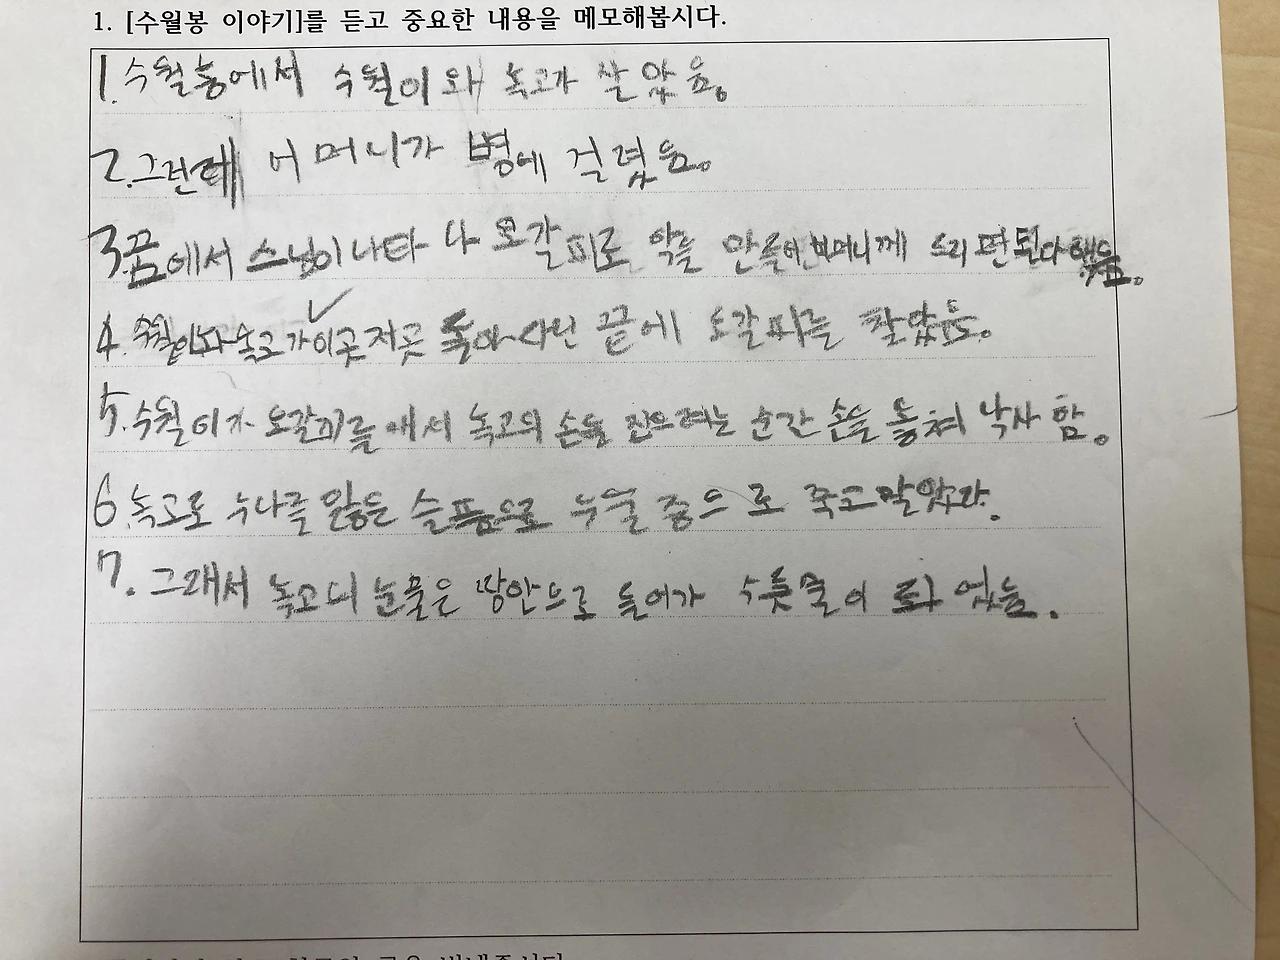 1. [수월봉 이야기]를 듣고 중요한 내용을 메모해봅시다.
1. 수월봉에서 수월이와 녹고가 살았음。
2. 그런데 어머니가 병에 걸렸음。
3 꿈에서 스님이 나타나 오갈피로 약을 만들어 어머니께 드리면 된다 했음。
4. 수월이와 녹고가 이곳저곳 돌아다닌 끝에 오갈피를 찾았음。
5. 수월이가 오갈피를 에서 녹고의 손을 잡으려는 순간 손을 놓쳐 낙사 함。
6. 녹고도 누나를 잃은 슬픔으로 죽고 말았다.
7. 그래서 녹고의 눈물은 땅안으로 들어가 이 되었음.